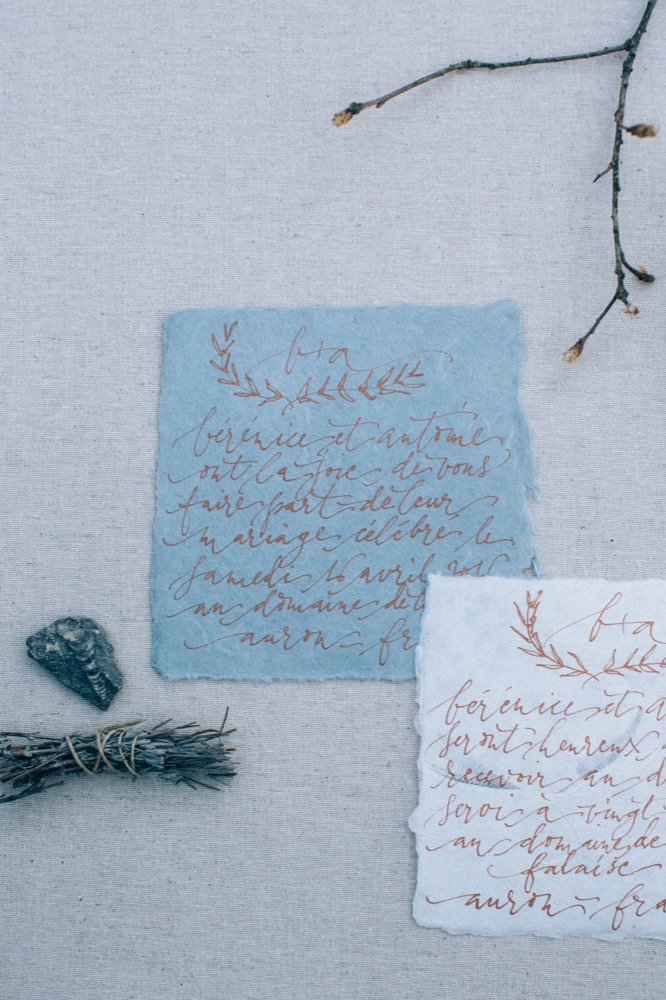 b+a
bérénice et antoine
ont la joie de vous
faire part de leur
mariage célébré le
samedi 16 avril 2016
au domaine de
auron fr
b+a
bérénice et a
seront heureux
recevoir au d
à vingt
au domaine de
falaise
auron - fra